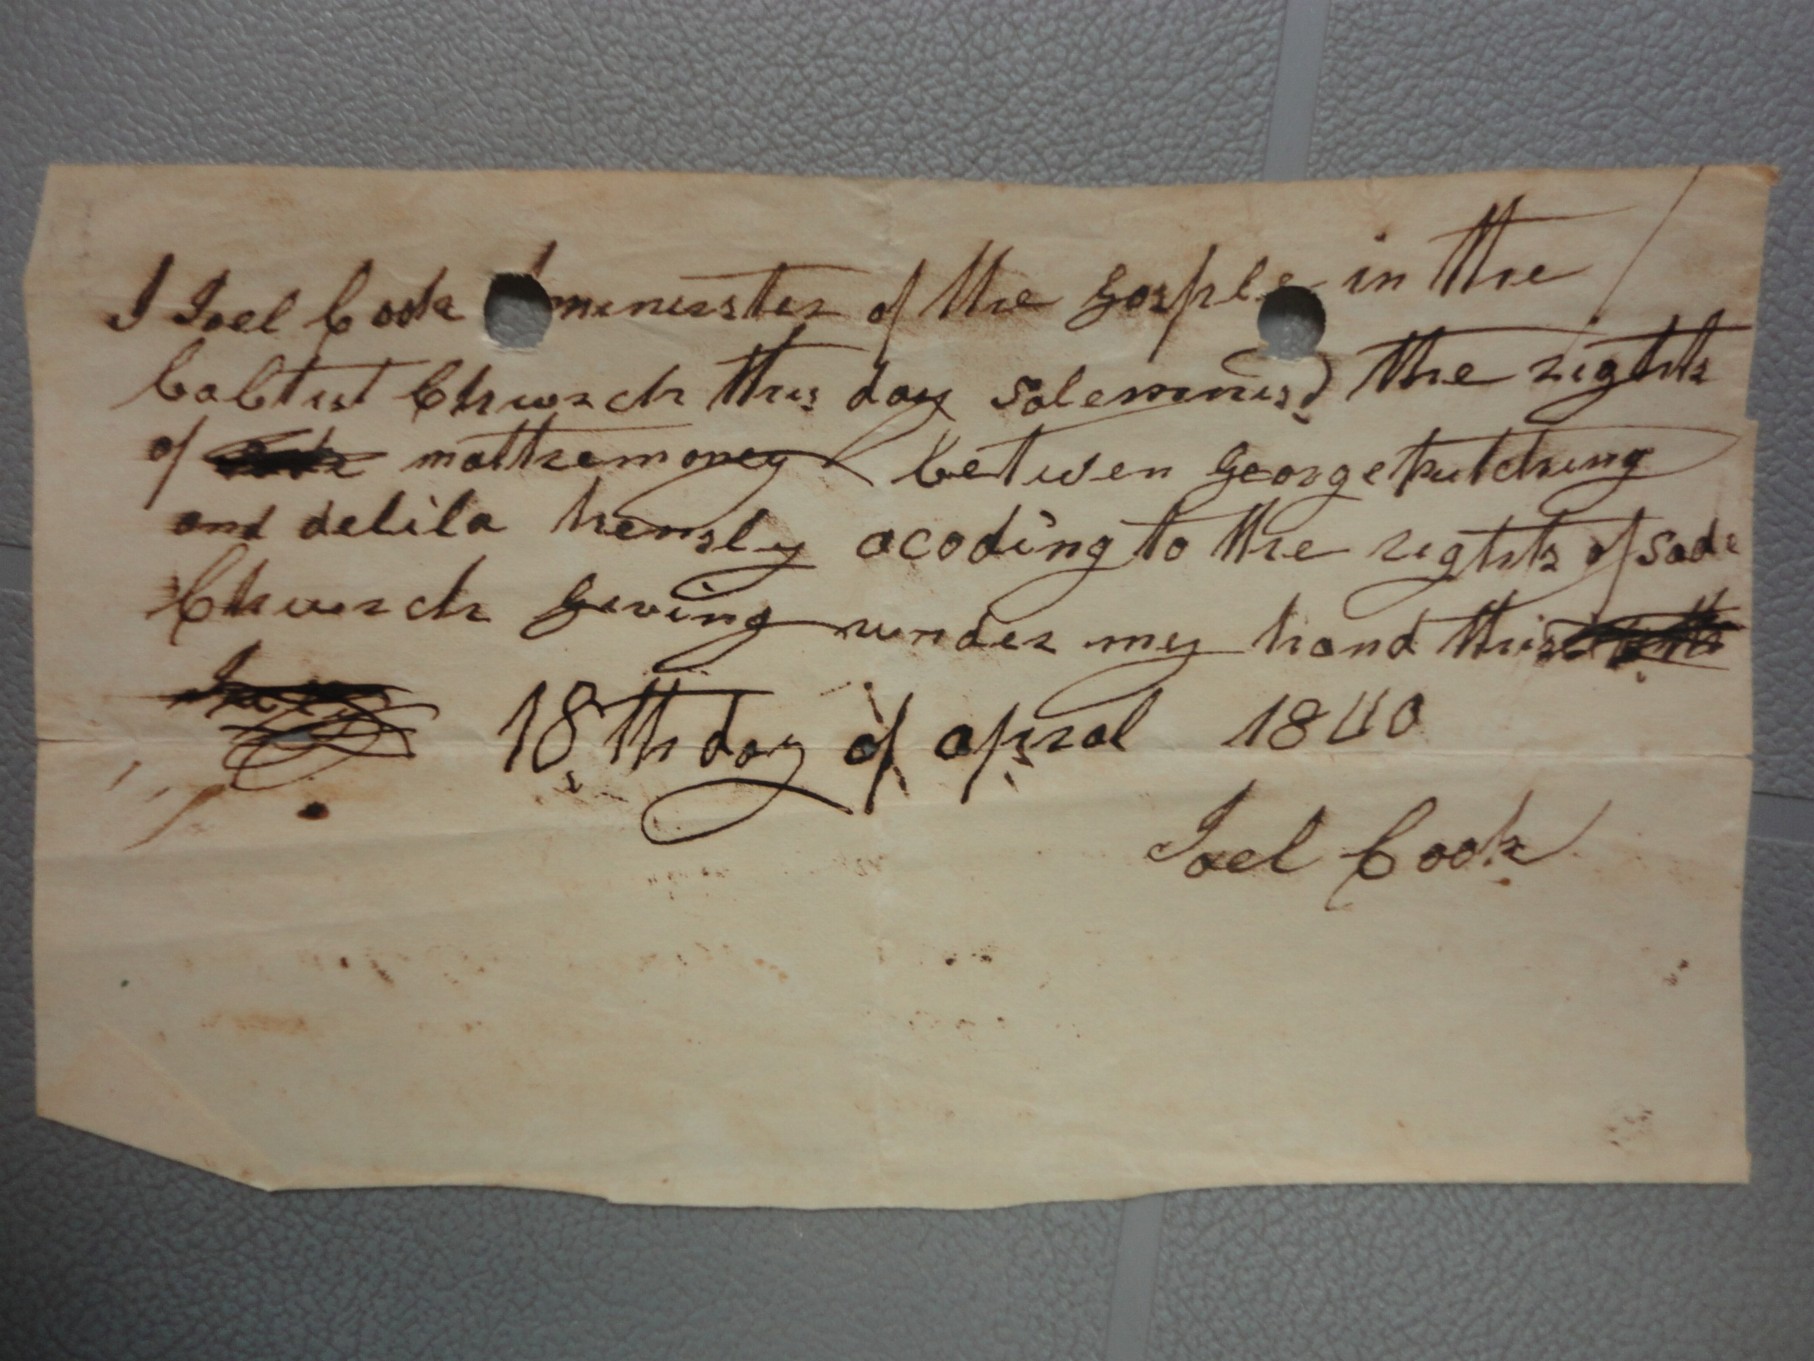 I Joel Cook minerster of the Gosple in the
babtist Church this day solemnisd the rights
of mattremoney betwen George hutchung
and delila hensly acoding to the rights of sade
Church Geving under my hand this
18th day of apral 1840
Joel Cook